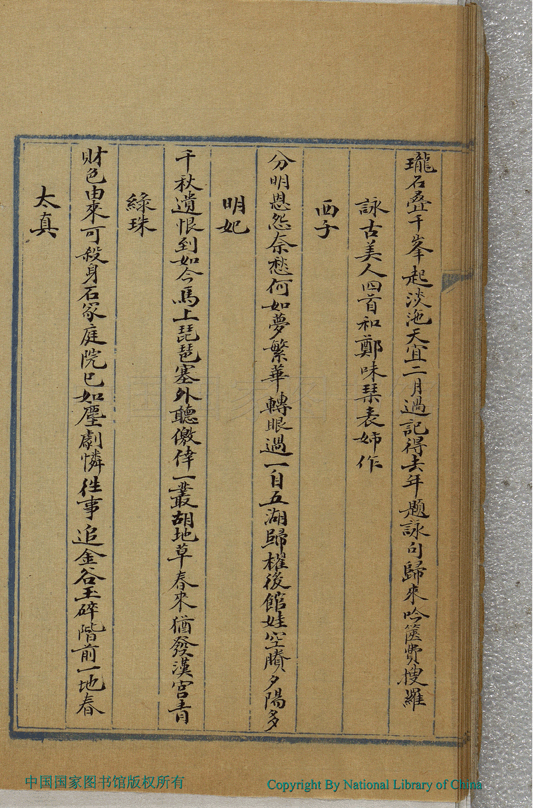 瓏石疊千峯起淡沲天宜二月過記得去年題詠句歸來吟篋費搜羅
詠古美人四首和鄭味琹表姊作
西子
分明恩怨奈愁何如夢繁華轉眼過一自五湖歸櫂後館娃空賸夕陽多
明妃
千秋遺恨到如今馬上琵琶塞外聽儌倖一叢胡地草春來猶發漢宮青
綠珠
財色由來可殺身石家庭院已如塵劇憐往事追金谷玉碎階前一地春
太真
中国国家图书馆版权所有
Copyright By National Library of China